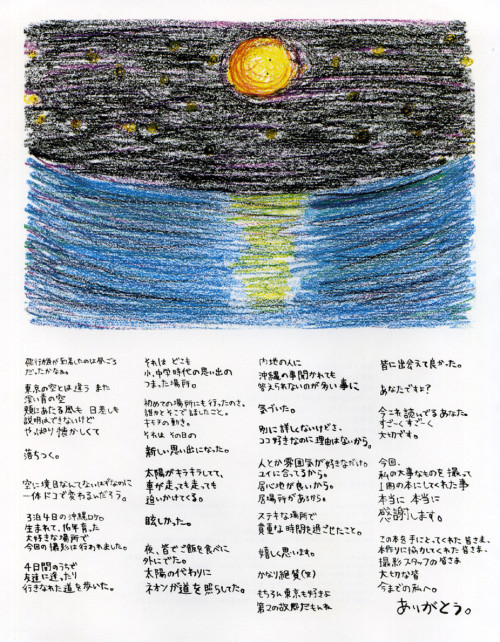 飛行機が到着したのは昼ごろ
だったかなぁ。
東京の空とは違う また
深い青の空
頬にあたる風も 日差しも
説明はできないけど
やっぱり 懐かしくて
落ちつく。
空に境目なんてないはずなのに
一体ドコで変わるんだろう。
3泊4日の沖縄ロケ。
生まれて、16年育った
大好きな場所で
今回の撮影は行われました。
4日間のうちで
友達に逢ったり
行きなれた道を歩いた。
それは どこも
小、中学時代の思い出の
つまった場所。
初めての場所にも行ったのさ。
誰かとそこで話したこと。
キモチの動き。
それは その日の
新しい思い出になった。
太陽がキラキラしてて、
車が走っても走っても
追いかけてくる。
眩しかったー。
夜、皆でご飯を食べに
外にでた。
太陽の代わりに
ネオンが道を照らしてた。
内地の人に
沖縄の事聞かれても
答えられないのが多い事に
気づいた。
別に詳しくないけどさ、
ココ好きなのに理由はないから。
人とか雰囲気が好きなだけ。
ユイに合ってるから。
居心地が良いから。
居場所があるから。
ステキな場所で
貴重な時間を過ごせたこと。
嬉しく思います。
かなり絶賛(笑)
もちろん東京も好きよ
第2の故郷だもんね
皆に出会えて良かった。
あなたですよ?
今これ読んでるあなた。
すご〜くすご〜く
大切です。
今回、
私の大事なものを撮って
1冊の本にしてくれた事
本当に 本当に
感謝します。
この本を手にとってくれた皆さま、
本作りに協力してくれた皆さま、
撮影スタッフの皆さま
大切な皆
今までの私へ。
ありがとう。